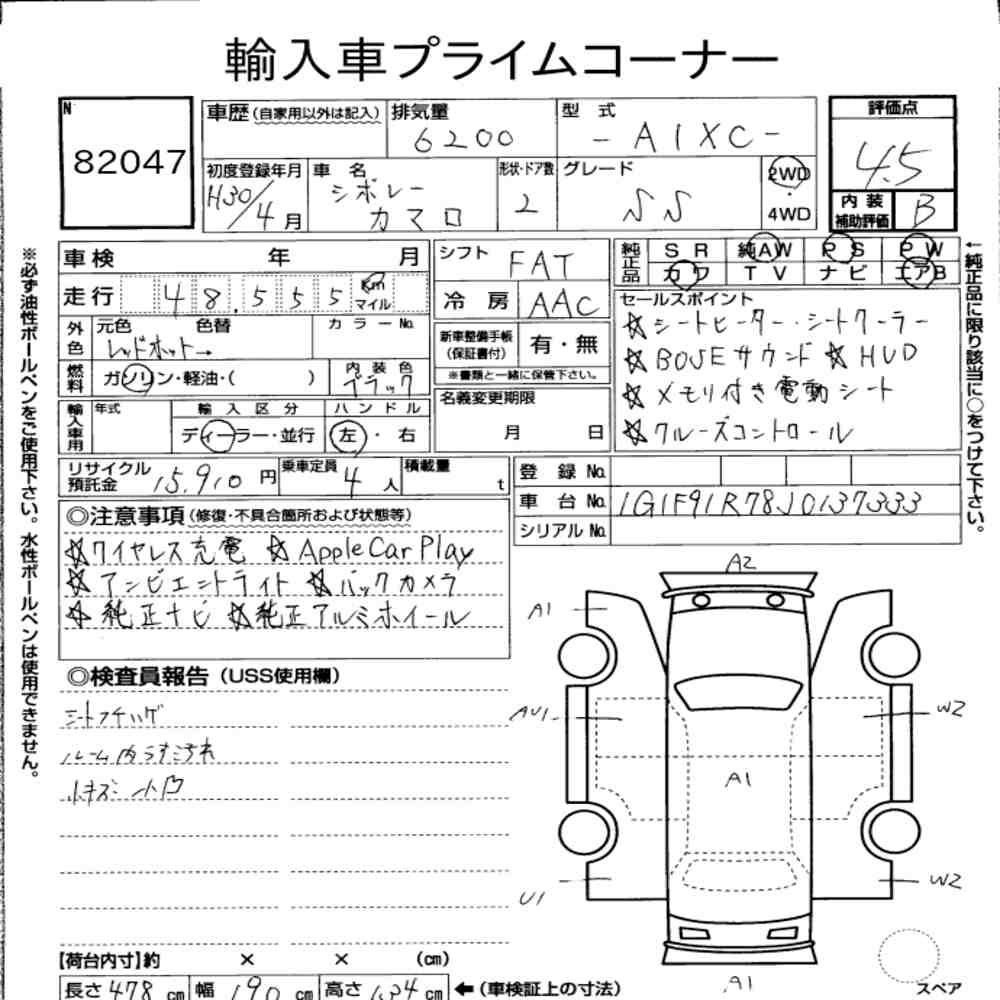 輸入車プライムコーナー
N
82047
車歴(自家用以外は記入)
排気量
6200
型 式
-A1XC-
評価点
4.5
初度登録年月
H30/4月
車 名
シボレー
カマロ
形状・ドア数
2
グレード
SS
2WD
・
4WD
内 装
補助評価
B
車検 年 月
走行 48,555 Km
マイル
外色
元色 色替
レッドホット→
カラーNo.
燃料
ガソリン・軽油・( )
内 装 色
ブラック
輸入車用
年式
輸 入 区 分
ディーラー・並行
ハ ン ド ル
左・右
シフト
FAT
冷 房
AAC
新車整備手帳
(保証書付)
有・無
※書類と一緒に保管下さい。
名義変更期限
月 日
純正品
SR 純AW PS PW
カワ TV ナビ エアB
セールスポイント
☆シートヒーター・シートクーラー
☆BOSEサウンド ☆HUD
☆メモリ付き電動シート
☆クルーズコントロール
リサイクル
預託金
15,910円
乗車定員
4人
積載量
t
登 録 No.
車 台 No.
1G1F91R78J0137333
シリアル No.
◎注意事項(修復・不具合箇所および状態等)
☆ワイヤレス充電 ☆Apple Car Play
☆アンビエントライト ☆バックカメラ
☆純正ナビ ☆純正アルミホイール
◎検査員報告(USS使用欄)
ルーム内うすごれ
小キズ 小凹
A2
A1
AU1
W2
A1
U1
W2
A1
スペア
【荷台内寸】約 × × (cm)
長さ478cm
幅190cm
高さ134cm
←(車検証上の寸法)
※必ず油性ボールペンをご使用下さい。水性ボールペンは使用できません。
←純正品に限り該当に○をつけて下さい。